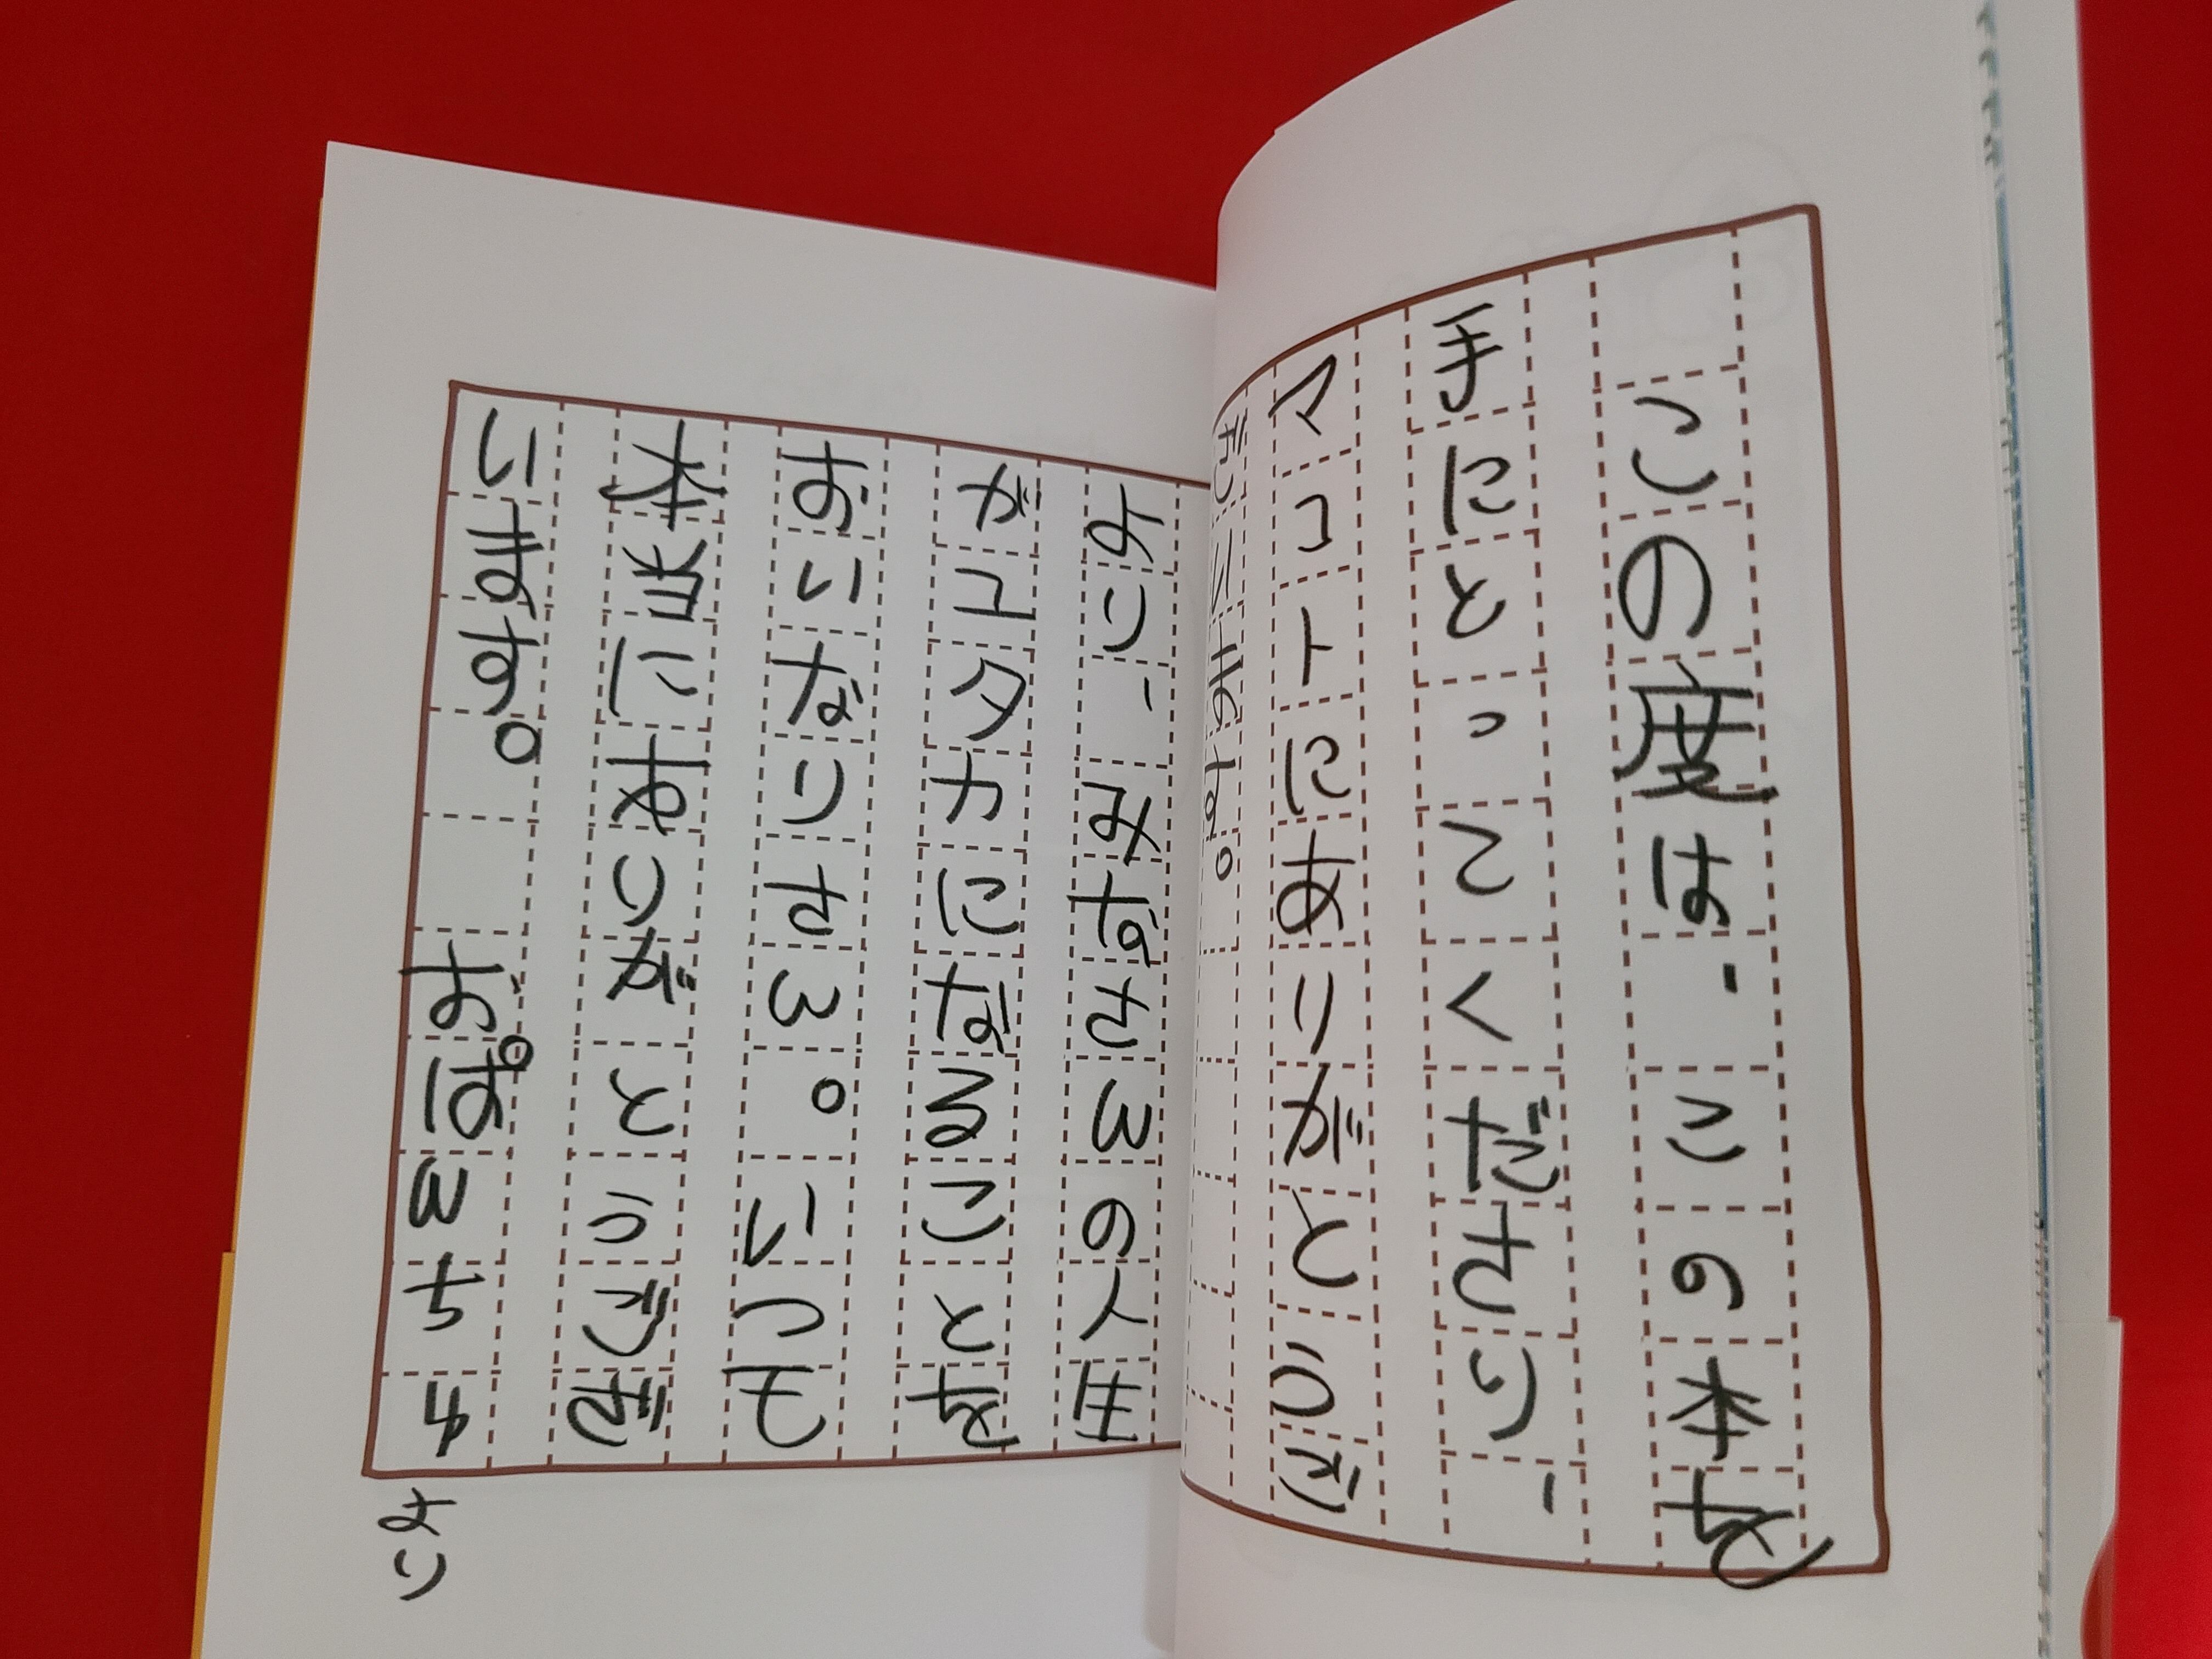 この度は、この本を
手にとってくださり、
マコトにありがとうご
ざいます。
より、みなさんの人生
がユタカになることを
おいなりさん。いつも
本当にありがとうござ
います。 おぱんちゅ
より